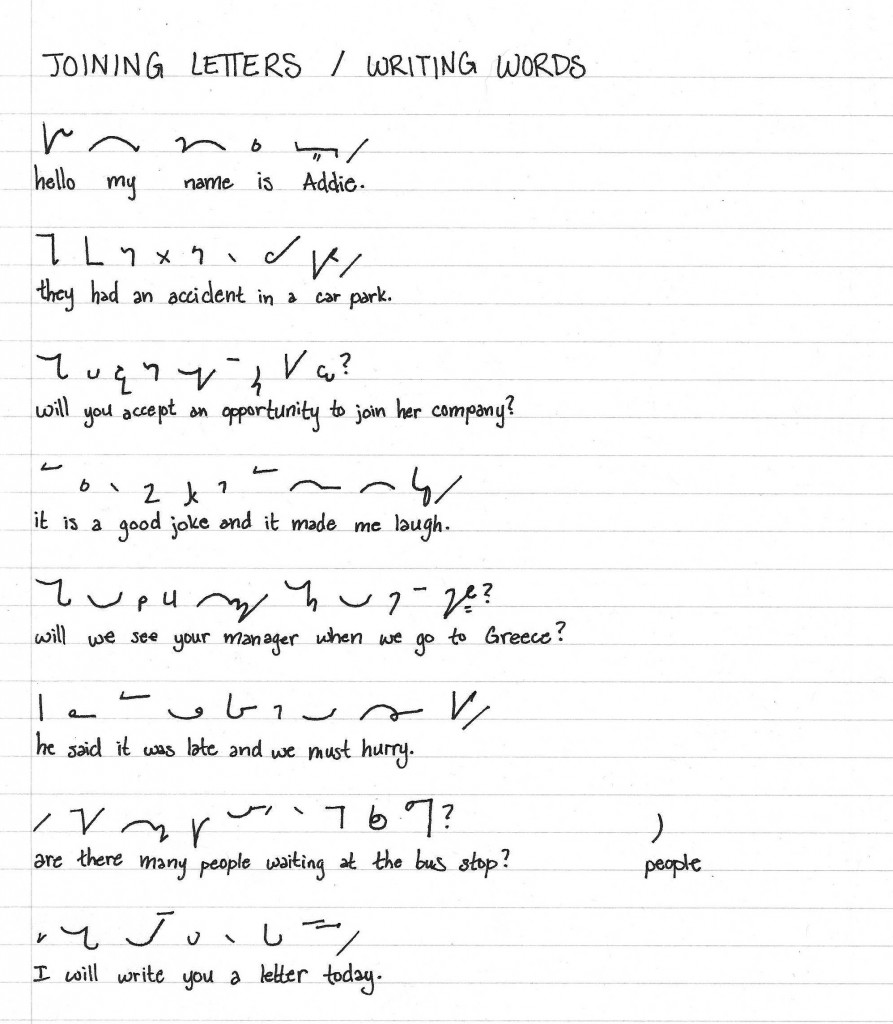 JOINING LETTERS / WRITING WORDS
hello my name is Addie.
they had an accident in a car park.
will you accept an opportunity to join her company?
it is a good joke and it made me laugh.
will we see your manager when we go to Greece?
he said it was late and we must hurry.
are there many people waiting at the bus stop? people
I will write you a letter today.